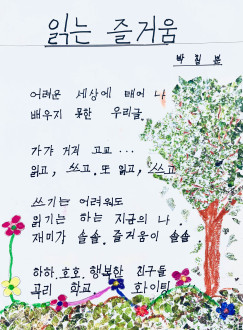 읽는 즐거움
박길분
어려운 세상에 태어나
배우지 못한 우리글.
가갸 거겨 고교 ...
읽고, 쓰고. 또 읽고, 쓰고
쓰기는 어려워도
읽기는 하는 지금의 나.
재미가 솔솔. 즐거움이 솔솔
하하. 호호. 행복한 친구들
우리 학교 화이팅